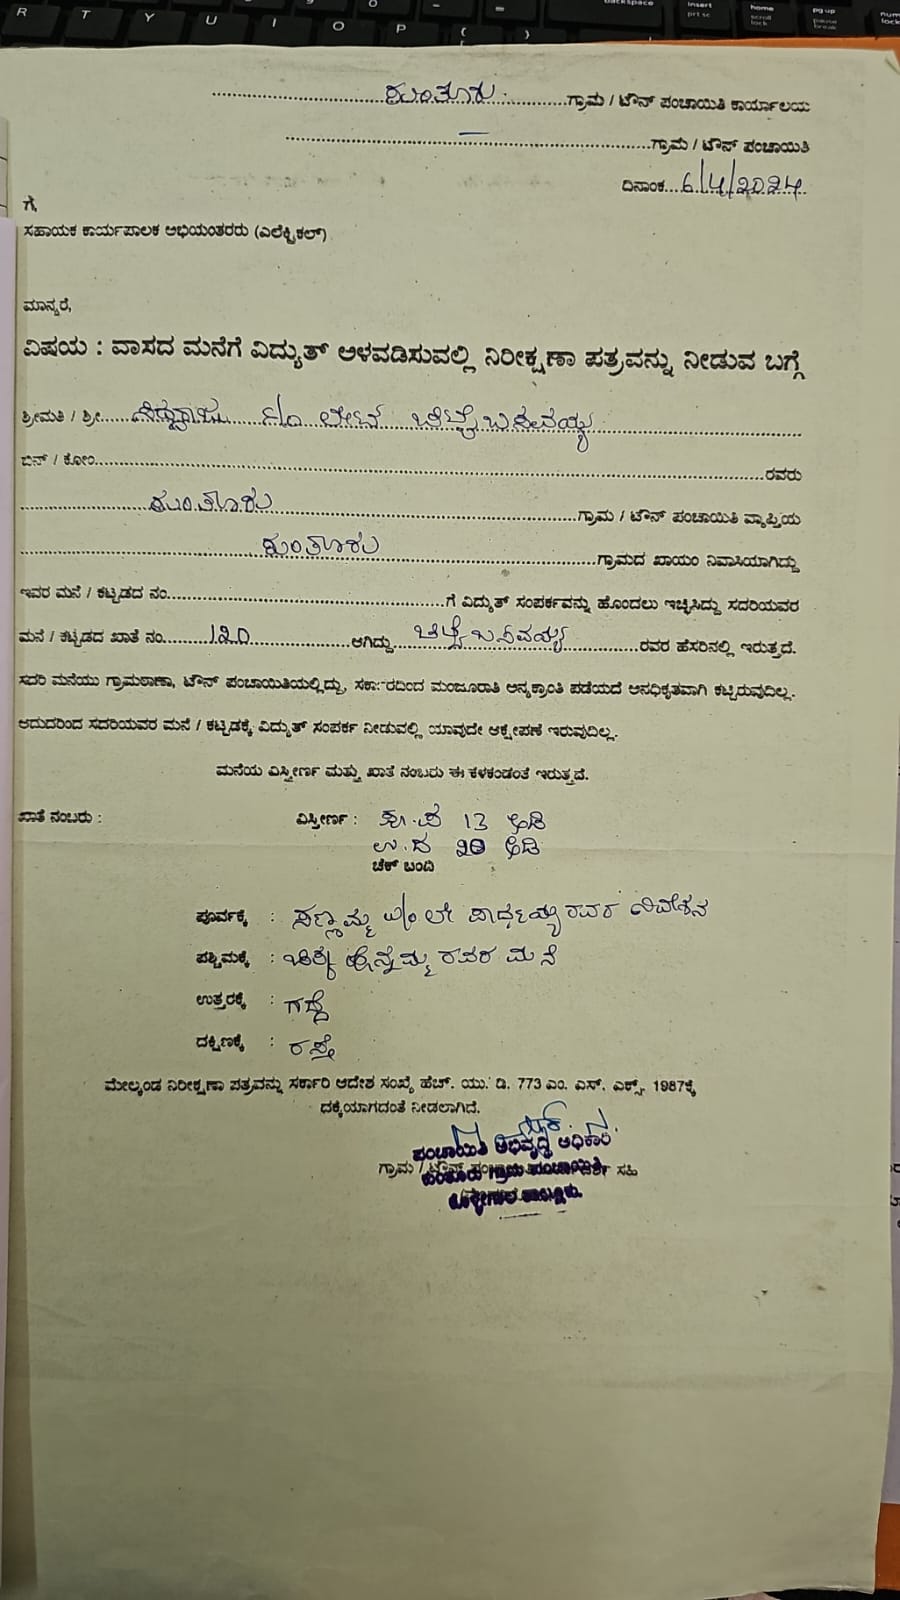 ಕುಂತೂರು ಗ್ರಾಮ / ಟೌನ್ ಪಂಚಾಯಿತಿ ಕಾರ್ಯಾಲಯ
ಗ್ರಾಮ / ಟೌನ್ ಪಂಚಾಯಿತಿ
ದಿನಾಂಕ...6/4/2024
ಗೆ,
ಸಹಾಯಕ ಕಾರ್ಯಪಾಲಕ ಅಭಿಯಂತರರು (ಎಲೆಕ್ಟ್ರಿಕಲ್)
ಮಾನ್ಯರೆ,
ವಿಷಯ : ವಾಸದ ಮನೆಗೆ ವಿದ್ಯುತ್ ಅಳವಡಿಸುವಲ್ಲಿ ನಿರೀಕ್ಷಣಾ ಪತ್ರವನ್ನು ನೀಡುವ ಬಗ್ಗೆ
ಶ್ರೀಮತಿ / ಶ್ರೀ.... S/o ಲೇಟ್ ಬಸವಯ್ಯ
ಬಿನ್ / ಕೋಂ.... ರವರು
ಕುಂತೂರು ಗ್ರಾಮ / ಟೌನ್ ಪಂಚಾಯಿತಿ ವ್ಯಾಪ್ತಿಯ
ಕುಂತೂರು ಗ್ರಾಮದ ಖಾಯಂ ನಿವಾಸಿಯಾಗಿದ್ದು
ಇವರ ಮನೆ / ಕಟ್ಟಡದ ನಂ.... ಗೆ ವಿದ್ಯುತ್ ಸಂಪರ್ಕವನ್ನು ಹೊಂದಲು ಇಚ್ಛಿಸಿದ್ದು ಸದರಿಯವರ
ಮನೆ / ಕಟ್ಟಡದ ಖಾತೆ ನಂ.... ಆಗಿದ್ದು ಬಸವಯ್ಯ ರವರ ಹೆಸರಿನಲ್ಲಿ ಇರುತ್ತದೆ.
ಸದರಿ ಮನೆಯು ಗ್ರಾಮಠಾಣಾ, ಟೌನ್ ಪಂಚಾಯಿತಿಯಲ್ಲಿದ್ದು, ಸರ್ಕಾರದಿಂದ ಮಂಜೂರಾತಿ ಅನ್ಯಕ್ರಾಂತಿ ಪಡೆಯದೆ ಅನಧಿಕೃತವಾಗಿ ಕಟ್ಟಿರುವುದಿಲ್ಲ.
ಆದುದರಿಂದ ಸದರಿಯವರ ಮನೆ / ಕಟ್ಟಡಕ್ಕೆ ವಿದ್ಯುತ್ ಸಂಪರ್ಕ ನೀಡುವಲ್ಲಿ ಯಾವುದೇ ಆಕ್ಷೇಪಣೆ ಇರುವುದಿಲ್ಲ.
ಮನೆಯ ವಿಸ್ತೀರ್ಣ ಮತ್ತು ಖಾತೆ ನಂಬರು ಈ ಕೆಳಕಂಡಂತೆ ಇರುತ್ತದೆ.
ಖಾತೆ ನಂಬರು : ವಿಸ್ತೀರ್ಣ : ಪೂ.ಪ 13 ಅಡಿ
ಉ.ದ 20 ಅಡಿ
ಚೆಕ್ ಬಂದಿ
ಪೂರ್ವಕ್ಕೆ : ಸಣ್ಣಮ್ಮ W/o ಲೇ ರವರ ನಿವೇಶನ
ಪಶ್ಚಿಮಕ್ಕೆ : ರವರ ಮನೆ
ಉತ್ತರಕ್ಕೆ : ಗದ್ದೆ
ದಕ್ಷಿಣಕ್ಕೆ : ರಸ್ತೆ
ಮೇಲ್ಕಂಡ ನಿರೀಕ್ಷಣಾ ಪತ್ರವನ್ನು ಸರ್ಕಾರಿ ಆದೇಶ ಸಂಖ್ಯೆ ಹೆಚ್. ಯು. ಡಿ. 773 ಎಂ. ಎಸ್. ಎಕ್ಸ್. 1987ಕ್ಕೆ
ದಕ್ಕೆಯಾಗದಂತೆ ನೀಡಲಾಗಿದೆ.
ಪಂಚಾಯಿತಿ ಅಭಿವೃದ್ಧಿ ಅಧಿಕಾರಿ
ಗ್ರಾಮ / ಟೌನ್ ಸಹಿ
ಕುಂತೂರು ಗ್ರಾಮ ಪಂಚಾಯಿತಿ
ಕೊಳ್ಳೇಗಾಲ ತಾಲ್ಲೂಕು.